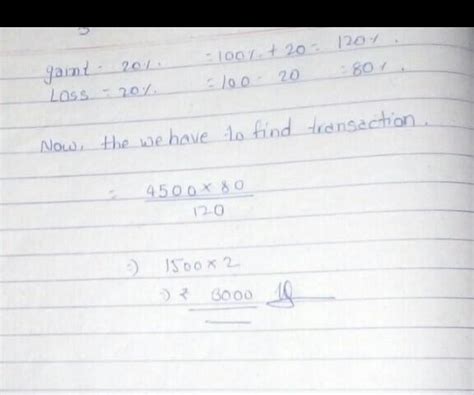 gaint = 20%. = 100% + 20 = 120%.
Loss = 20%. = 100 - 20 = 80%.
Now, the we have to find transection.
= 4500 × 80
120
⇒) 1500 × 2
⇒) ₹ 3000